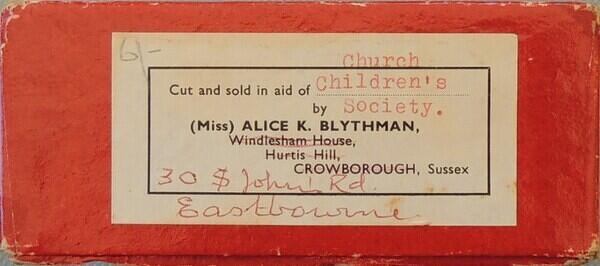 6/-
Church
Cut and sold in aid of Children's
by Society.
(Miss) ALICE K. BLYTHMAN,
Windlesham House,
Hurtis Hill,
CROWBOROUGH, Sussex
30 St John's Rd.
Eastbourne